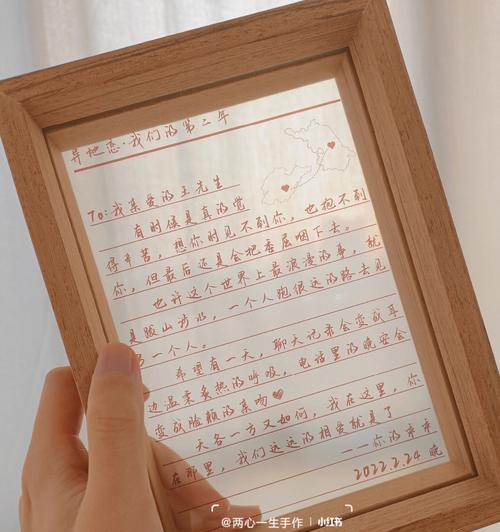 异地恋·我们的第二年
To:我亲爱的王先生
有时候是真的觉
得辛苦，想你时见不到你，也抱不到
你，但最后还是会把委屈咽下去。
也许这个世界上最浪漫的事，就
是跋山涉水，一个人跑很远的路去见
另一个人。
希望有一天，聊天记录会变成耳
边温柔炙热的呼吸，电话里的晚安会
变成脸颊的亲吻♥
天各一方又如何，我在这里，你
在那里，我们远远的相爱就是了
——你的
2022.2.24 晚
@两心一生手作 | 小红书